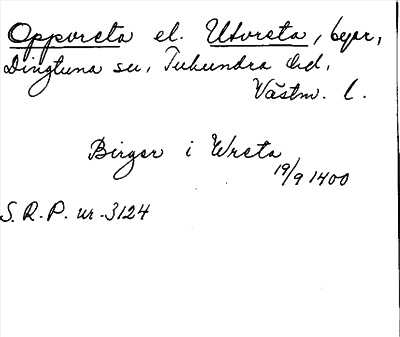 Oppvreta el. Utvreta, byar,
Dingtuna sn, Tuhundra hd,
Västm. l.
Birger i Wreta
19/9 1400
S.R.P. nr. 3124